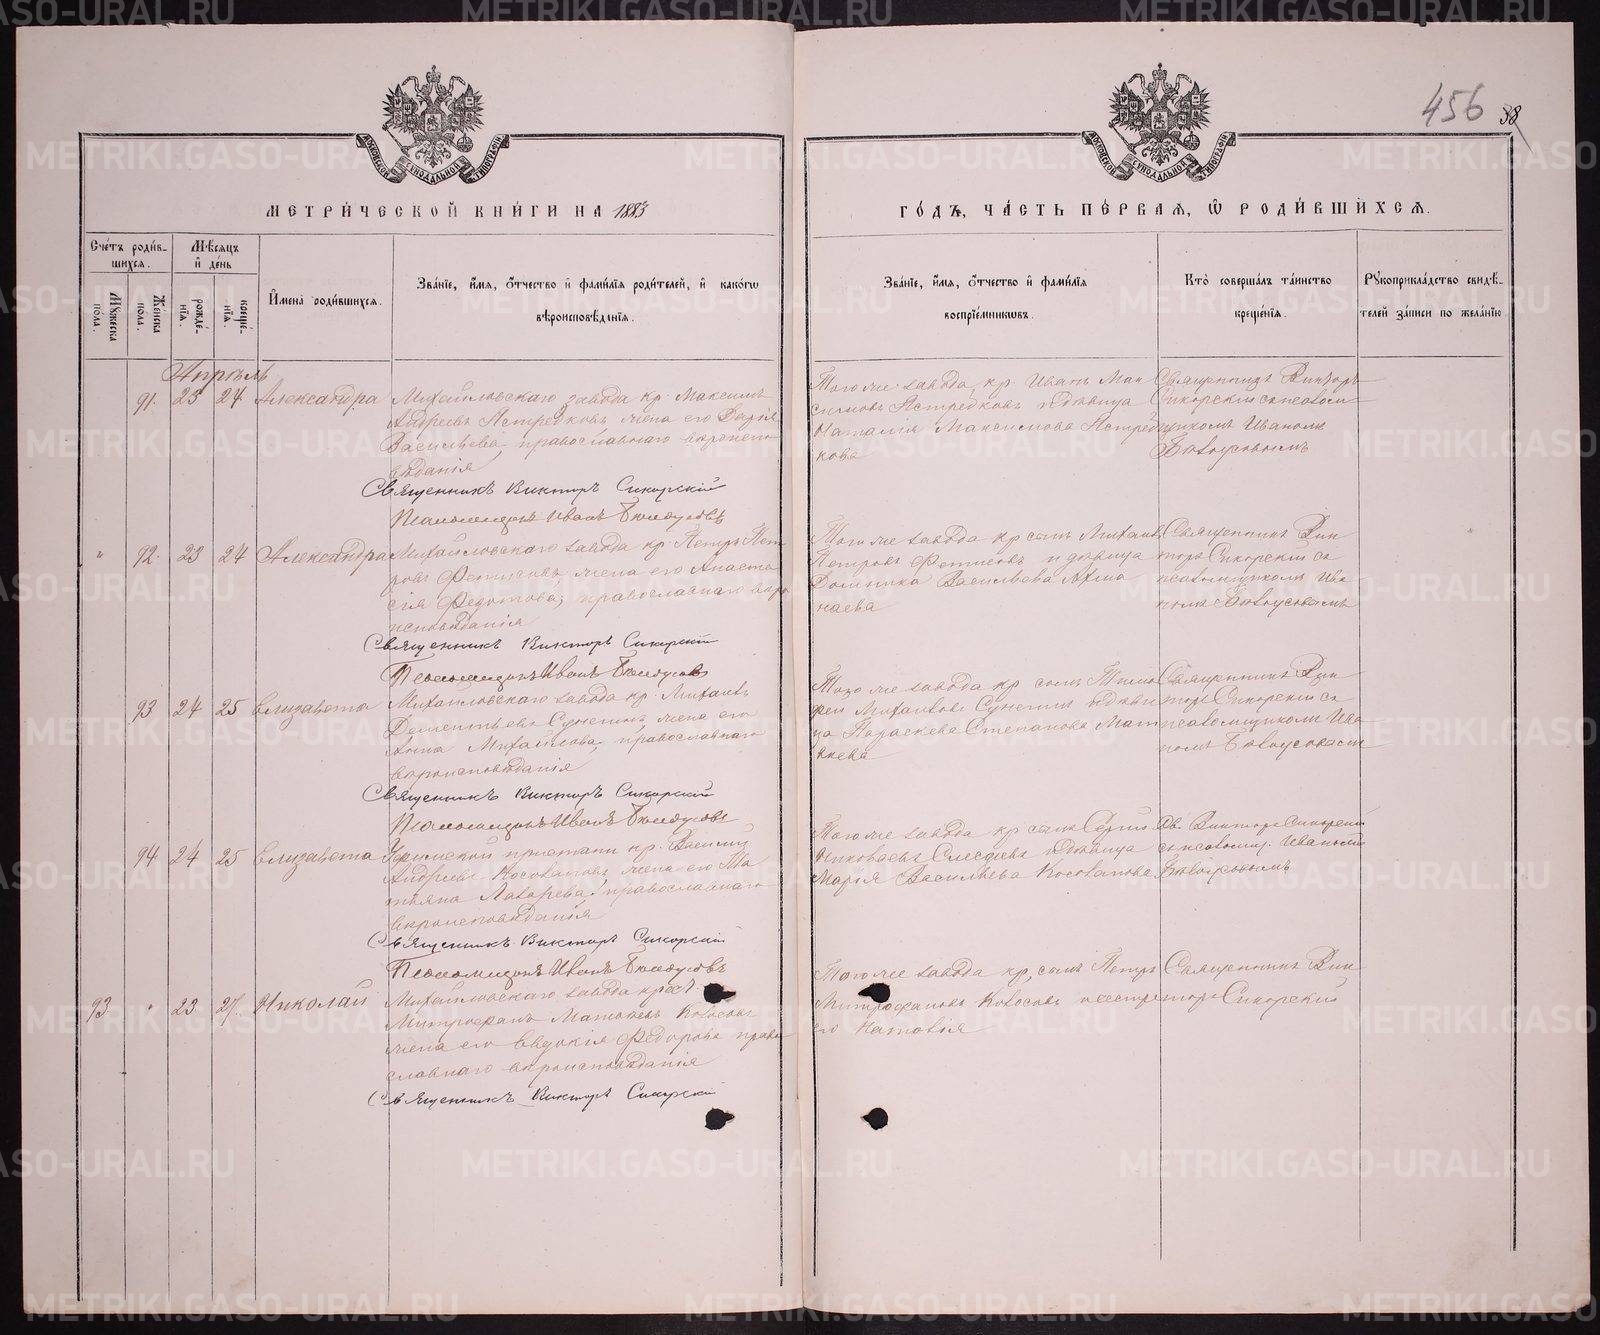 456 38
МОСКОВСКОЙ СѴНОДАЛЬНОЙ ТИПОГРАФІИ
МОСКОВСКОЙ СѴНОДАЛЬНОЙ ТИПОГРАФІИ
МЕТРИ́ЧЕСКОЙ КНИ́ГИ НА 1883
ГО́ДЪ, ЧА́СТЬ ПЕ́РВАЯ, Ѽ РОДИ́ВШИХСЯ.
Сче́тъ роди́в-
шихся.
Мѣ́сяцъ
и де́нь
Му́жеска по́ла.
Же́нска по́ла.
рожде́-нїя.
креще́-нїя.
И҆мена̀ роди́вшихся.
Зва́нїе, и҆́мя, ѻ҆́тчество и҆ фами́лїя роди́телей, и҆ како́гѡ
вѣроисповѣ́данїя.
Зва́нїе, и҆́мя, ѻ҆́тчество и҆ фами́лїя
воспрїе́мникѡвъ.
Кто̀ соверша́лъ та́инство
креще́нїя.
Рꙋкоприкла́дство свидѣ́-
телей за́писи по жела́нїю
Апрѣль
91. 23 24 Александра
Михайловскаго завода кр. Максимъ
Андреевъ Ястребковъ жена его Дарія
Васильева, православнаго вѣроиспо-
вѣданія
Священникъ Викторъ Сикорскій
Псаломщикъ Иванъ
Тогоже завода кр. Иванъ Мак
симовъ Ястребковъ и дѣвица
Наталія Максимова Ястреб
кова
Священникъ Викторъ
Сикорскій съ псалом-
щикомъ Иваномъ
" 92. 23 24 Александра
Михайловскаго завода кр. Петръ Пет
ровъ Фетисовъ жена его Анаста
сія Федотова, православнаго вѣро
исповѣданія
Священникъ Викторъ Сикорскій
Псаломщикъ Иванъ
Тогоже завода кр. сынъ Михаилъ
Петровъ Фетисовъ и дѣвица
Васильева
наева
Священникъ Вик
торъ Сикорскій съ
псаломщикомъ Ива
номъ
93 24 25 Елизавета
Михайловскаго завода кр. Михаилъ
Дементьевъ жена его
Анна Михайлова, православнаго
вѣроисповѣданія
Священникъ Викторъ Сикорскій
Псаломщикъ Иванъ
Тогоже завода кр. сынъ Тимо
фей Михаиловъ и дѣви
ца Параскева Степанова
Священникъ Вик
торъ Сикорскій съ
псаломщикомъ Ива
номъ
94 24 25 Елизавета
Уфимской пристани кр. Василій
Андреевъ Косолаповъ жена его Та
тьяна Лазарева, православнаго
вѣроисповѣданія
Священникъ Викторъ Сикорскій
Псаломщикъ Иванъ
Тогоже завода кр. сынъ Сергій
Николаевъ и дѣвица
Марія Васильева Косолапова
Св. Викторъ Сикорскій
съ псаломщ. Иваномъ
93 " 23 27 Николай
Михайловскаго завода крест.
Митрофанъ Колосовъ
жена его Евдокія Федорова право
славнаго вѣроисповѣданія
Священникъ Викторъ Сикорскій
Тогоже завода кр. сынъ Петръ
Митрофановъ Колосовъ и сестра
его Наталія
Священникъ Вик
торъ Сикорскій
METRIKI.GASO-URAL.RU